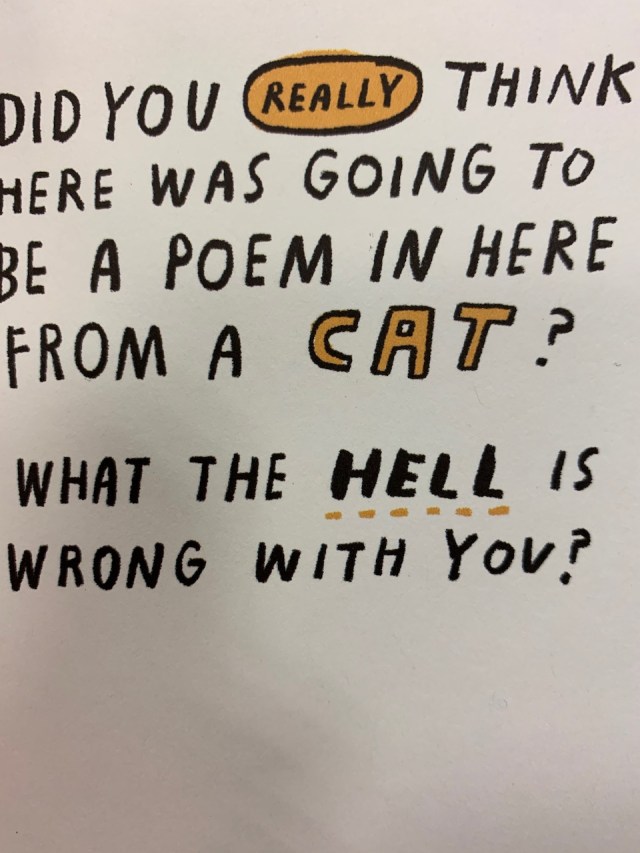 DID YOU REALLY THINK
HERE WAS GOING TO
BE A POEM IN HERE
FROM A CAT?
WHAT THE HELL IS
WRONG WITH YOU?